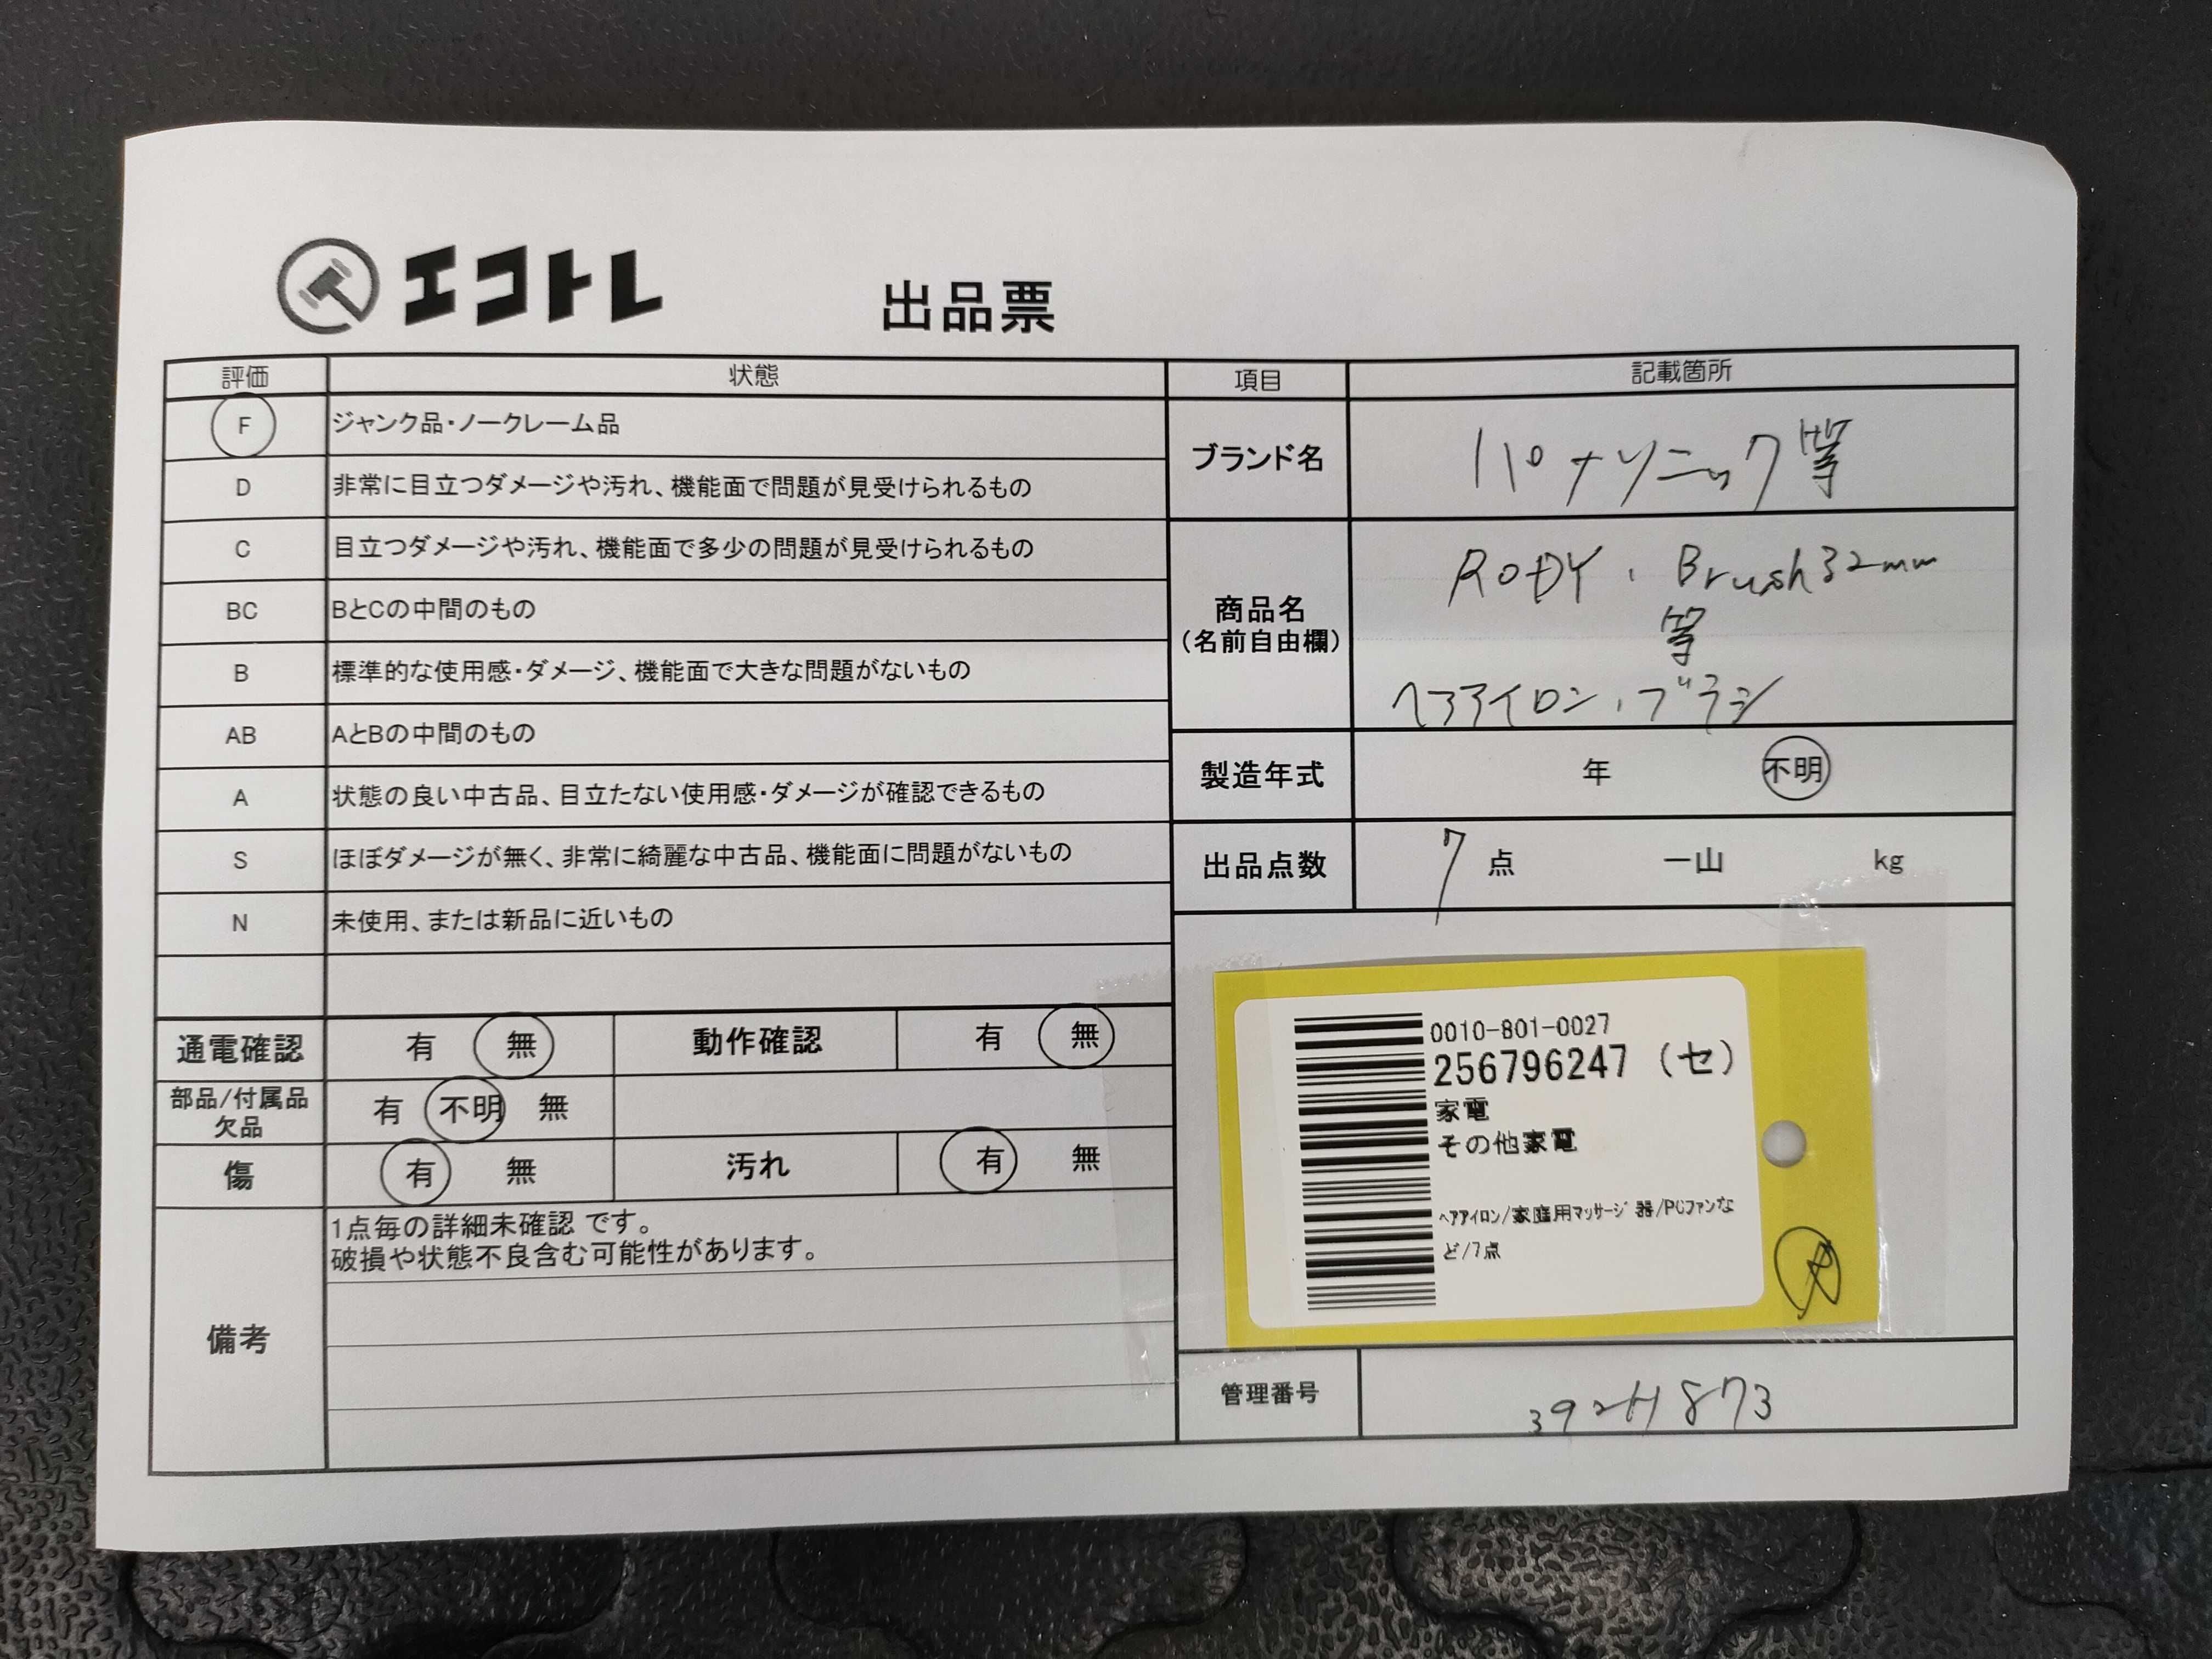 エコトレ
出品票
評価 状態
F ジャンク品・ノークレーム品
D 非常に目立つダメージや汚れ、機能面で問題が見受けられるもの
C 目立つダメージや汚れ、機能面で多少の問題が見受けられるもの
BC BとCの中間のもの
B 標準的な使用感・ダメージ、機能面で大きな問題がないもの
AB AとBの中間のもの
A 状態の良い中古品、目立たない使用感・ダメージが確認できるもの
S ほぼダメージが無く、非常に綺麗な中古品、機能面に問題がないもの
N 未使用、または新品に近いもの
通電確認 有 無 動作確認 有 無
部品/付属品
欠品
有 不明 無
傷 有 無 汚れ 有 無
備考
1点毎の詳細未確認 です。
破損や状態不良含む可能性があります。
項目 記載箇所
ブランド名 パナソニック等
商品名
(名前自由欄)
RODY、Brush32mm
等
ヘアアイロン、ブラシ
製造年式 年 不明
出品点数 7 点 一山 kg
0010-801-0027
256796247 (セ)
家電
その他家電
ヘアアイロン/家庭用マッサージ器/PCファンな
ど/7点
管理番号 392H873